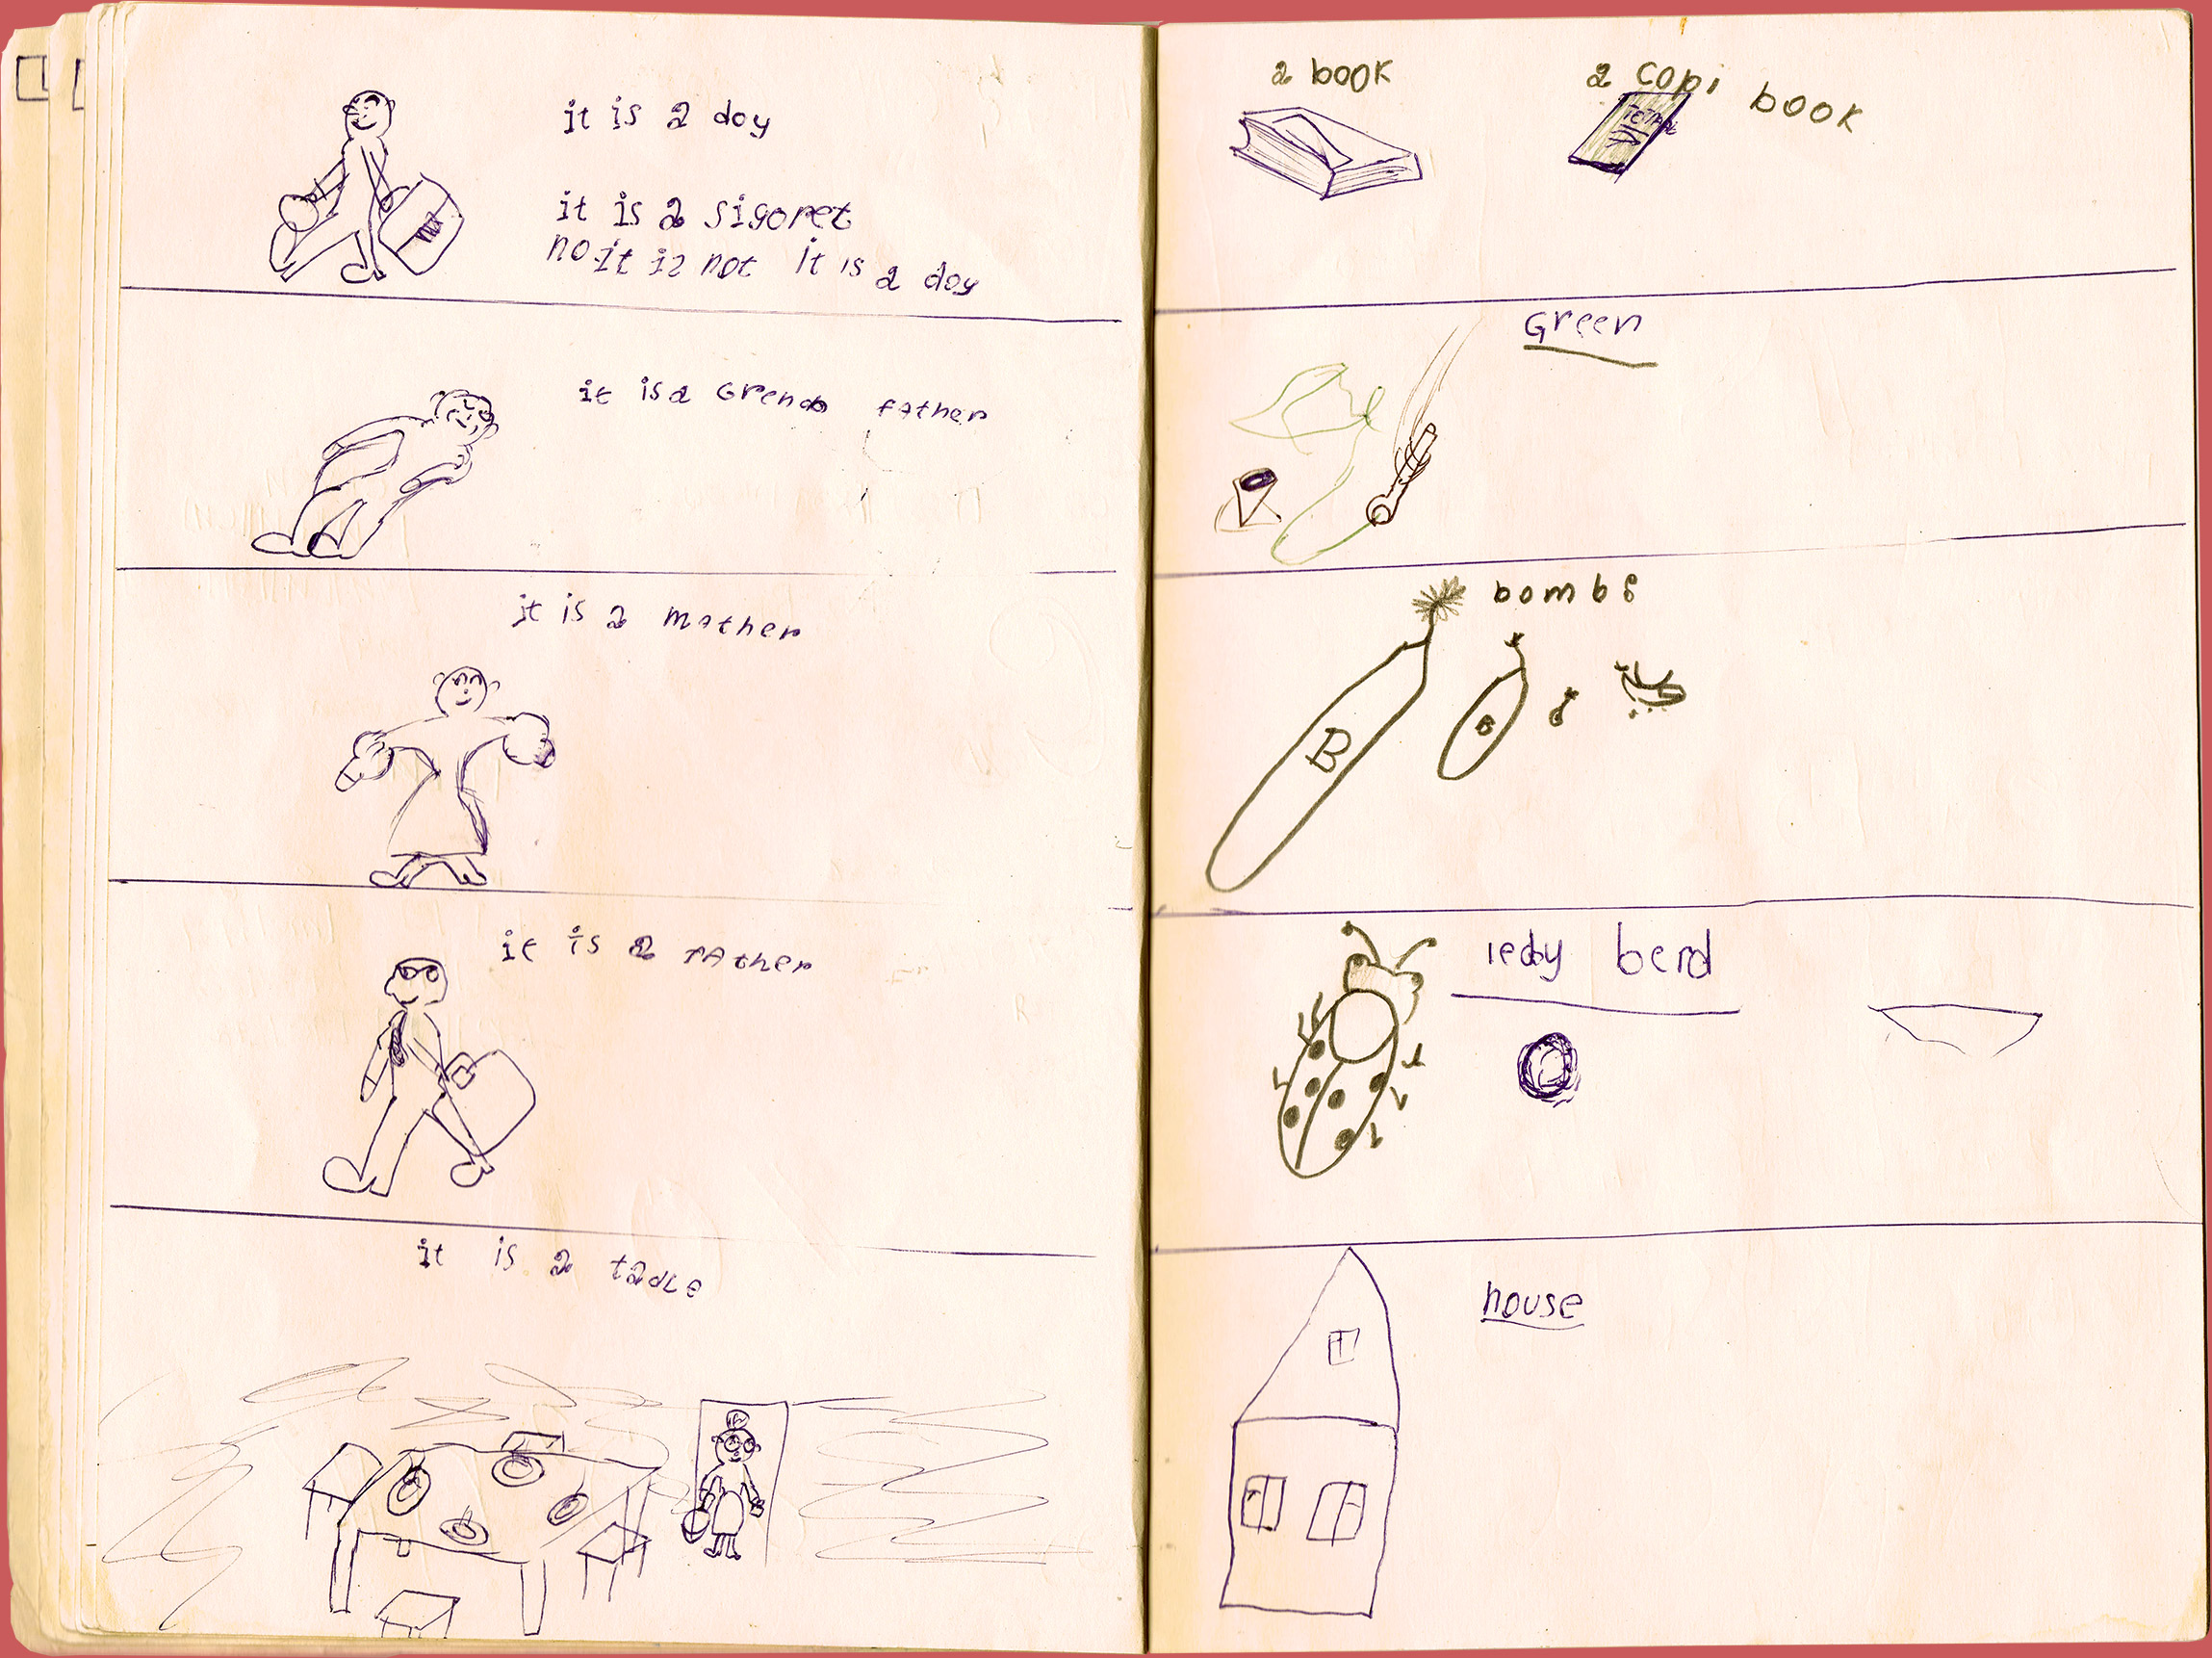 it is a doy
it is a sigoret
no it is not it is a doy
it is a Grend father
it is a mother
it is a father
it is a tadle
a book
a copi book
Green
bombs
B
B
ledy berd
house